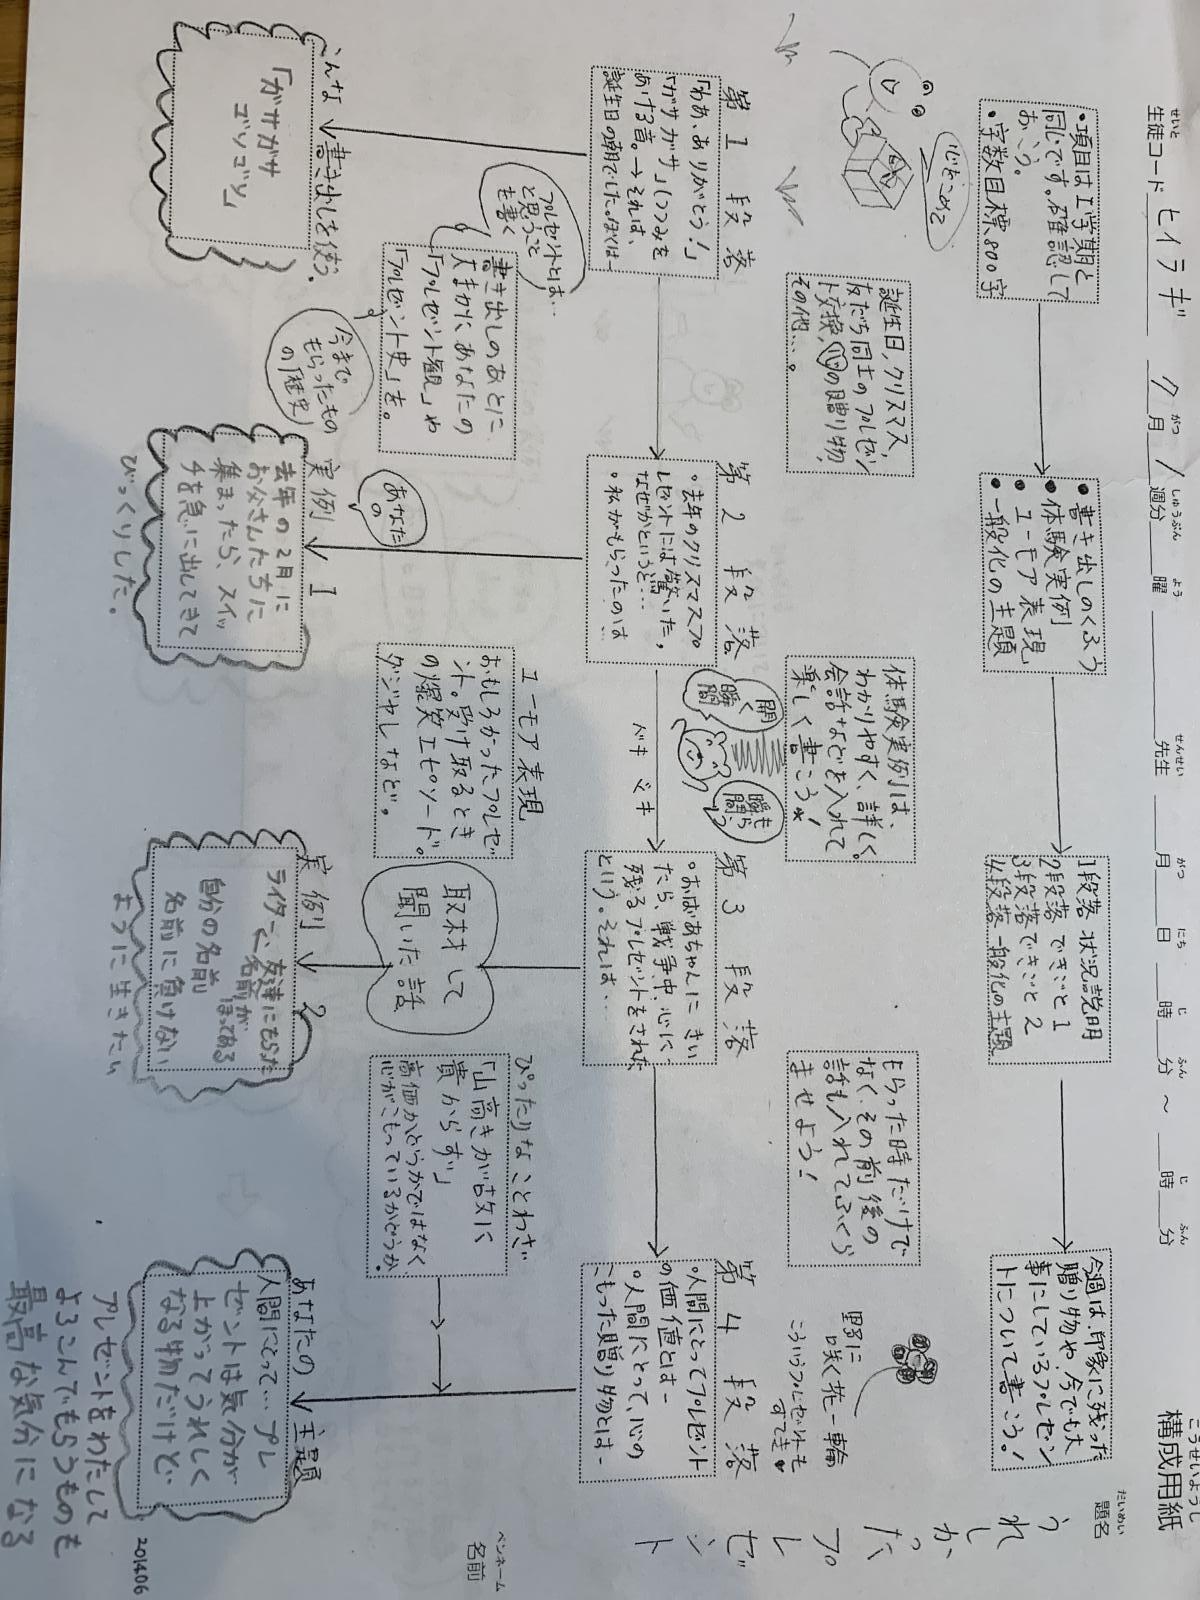 構成用紙
こうせいようし
生徒コード ヒイラギ ク月 1週分 曜 先生 月 日 時 分 ～ 時 分
せいと がつ しゅうぶん よう せんせい がつ にち じ ふん じ ふん
題名
だいめい
うれしかったプレゼント
・項目は1学期と
同じです。確認して
おこう。
・字数目標800字
・書き出しのくふう
・体験実例
・ユーモア表現
・一般化の主題
1段落 状況説明
2段落 できごと1
3段落 できごと2
4段落 一般化の主題
今週は、印象に残った
贈り物や、今でも大
事にしているプレゼン
トについて書こう!
心をこめた
誕生日、クリスマス、
友だち同士のプレゼン
ト交換、心の贈り物、
その他…。
体験実例は、
わかりやすく、詳しく。
会話などを入れて
楽しく書こう!
もらった時だけで
なく、その前後の
話も入れてふくら
ませよう!
野に
咲く花一輪
こういうプレゼントも
すてき
開く
瞬間
瞬も
ドキドキ
第1段落
「わあ、ありがとう!」
「ガサガサ」つつみを
あける音。→それは、
誕生日の朝でした。ぼくは…
第2段落
・去年のクリスマスプ
レゼントには驚いた。
なぜかというと…
・私がもらったのは…
第3段落
・おばあちゃんにきい
たら、戦争中、心に
残るプレゼントをされた
という。それは…
第4段落
・人間にとってプレゼント
の価値とは…
・人間にとって、心の
こもった贈り物とは…
プレゼントとは…
と思うこと
を書く
書き出しのあとに
大まかに、あなたの
「プレゼント観」や
「プレゼント史」を。
今まで
もらったもの
の「歴史」
あなたの
ユーモア表現
おもしろかったプレゼ
ント。受け取るとき
の爆笑エピソード。
ダジャレなど。
取材して
聞いた話
ぴったりなことわざ
「山高きが故に
貴からず」
高価かどうかではなく、
心がこもっているかどうか。
こんな書き出しを使う。
「ガサガサ
ゴソゴソ」
実例1
去年の2月に
お父さんたちに
集まったら、スイッ
チを急に出してきて
びっくりした。
実例2
ライター、友達にもらった
名前が
ほってある
自分の名前
名前に負けない
ように生きたい
あなたの主題
人間にとって…プレ
ゼントは気分が
上がってうれしく
なる物だけど…
プレゼントをわたして
よろこんでもらうものも
最高な気分になる
ペンネーム
名前
201406